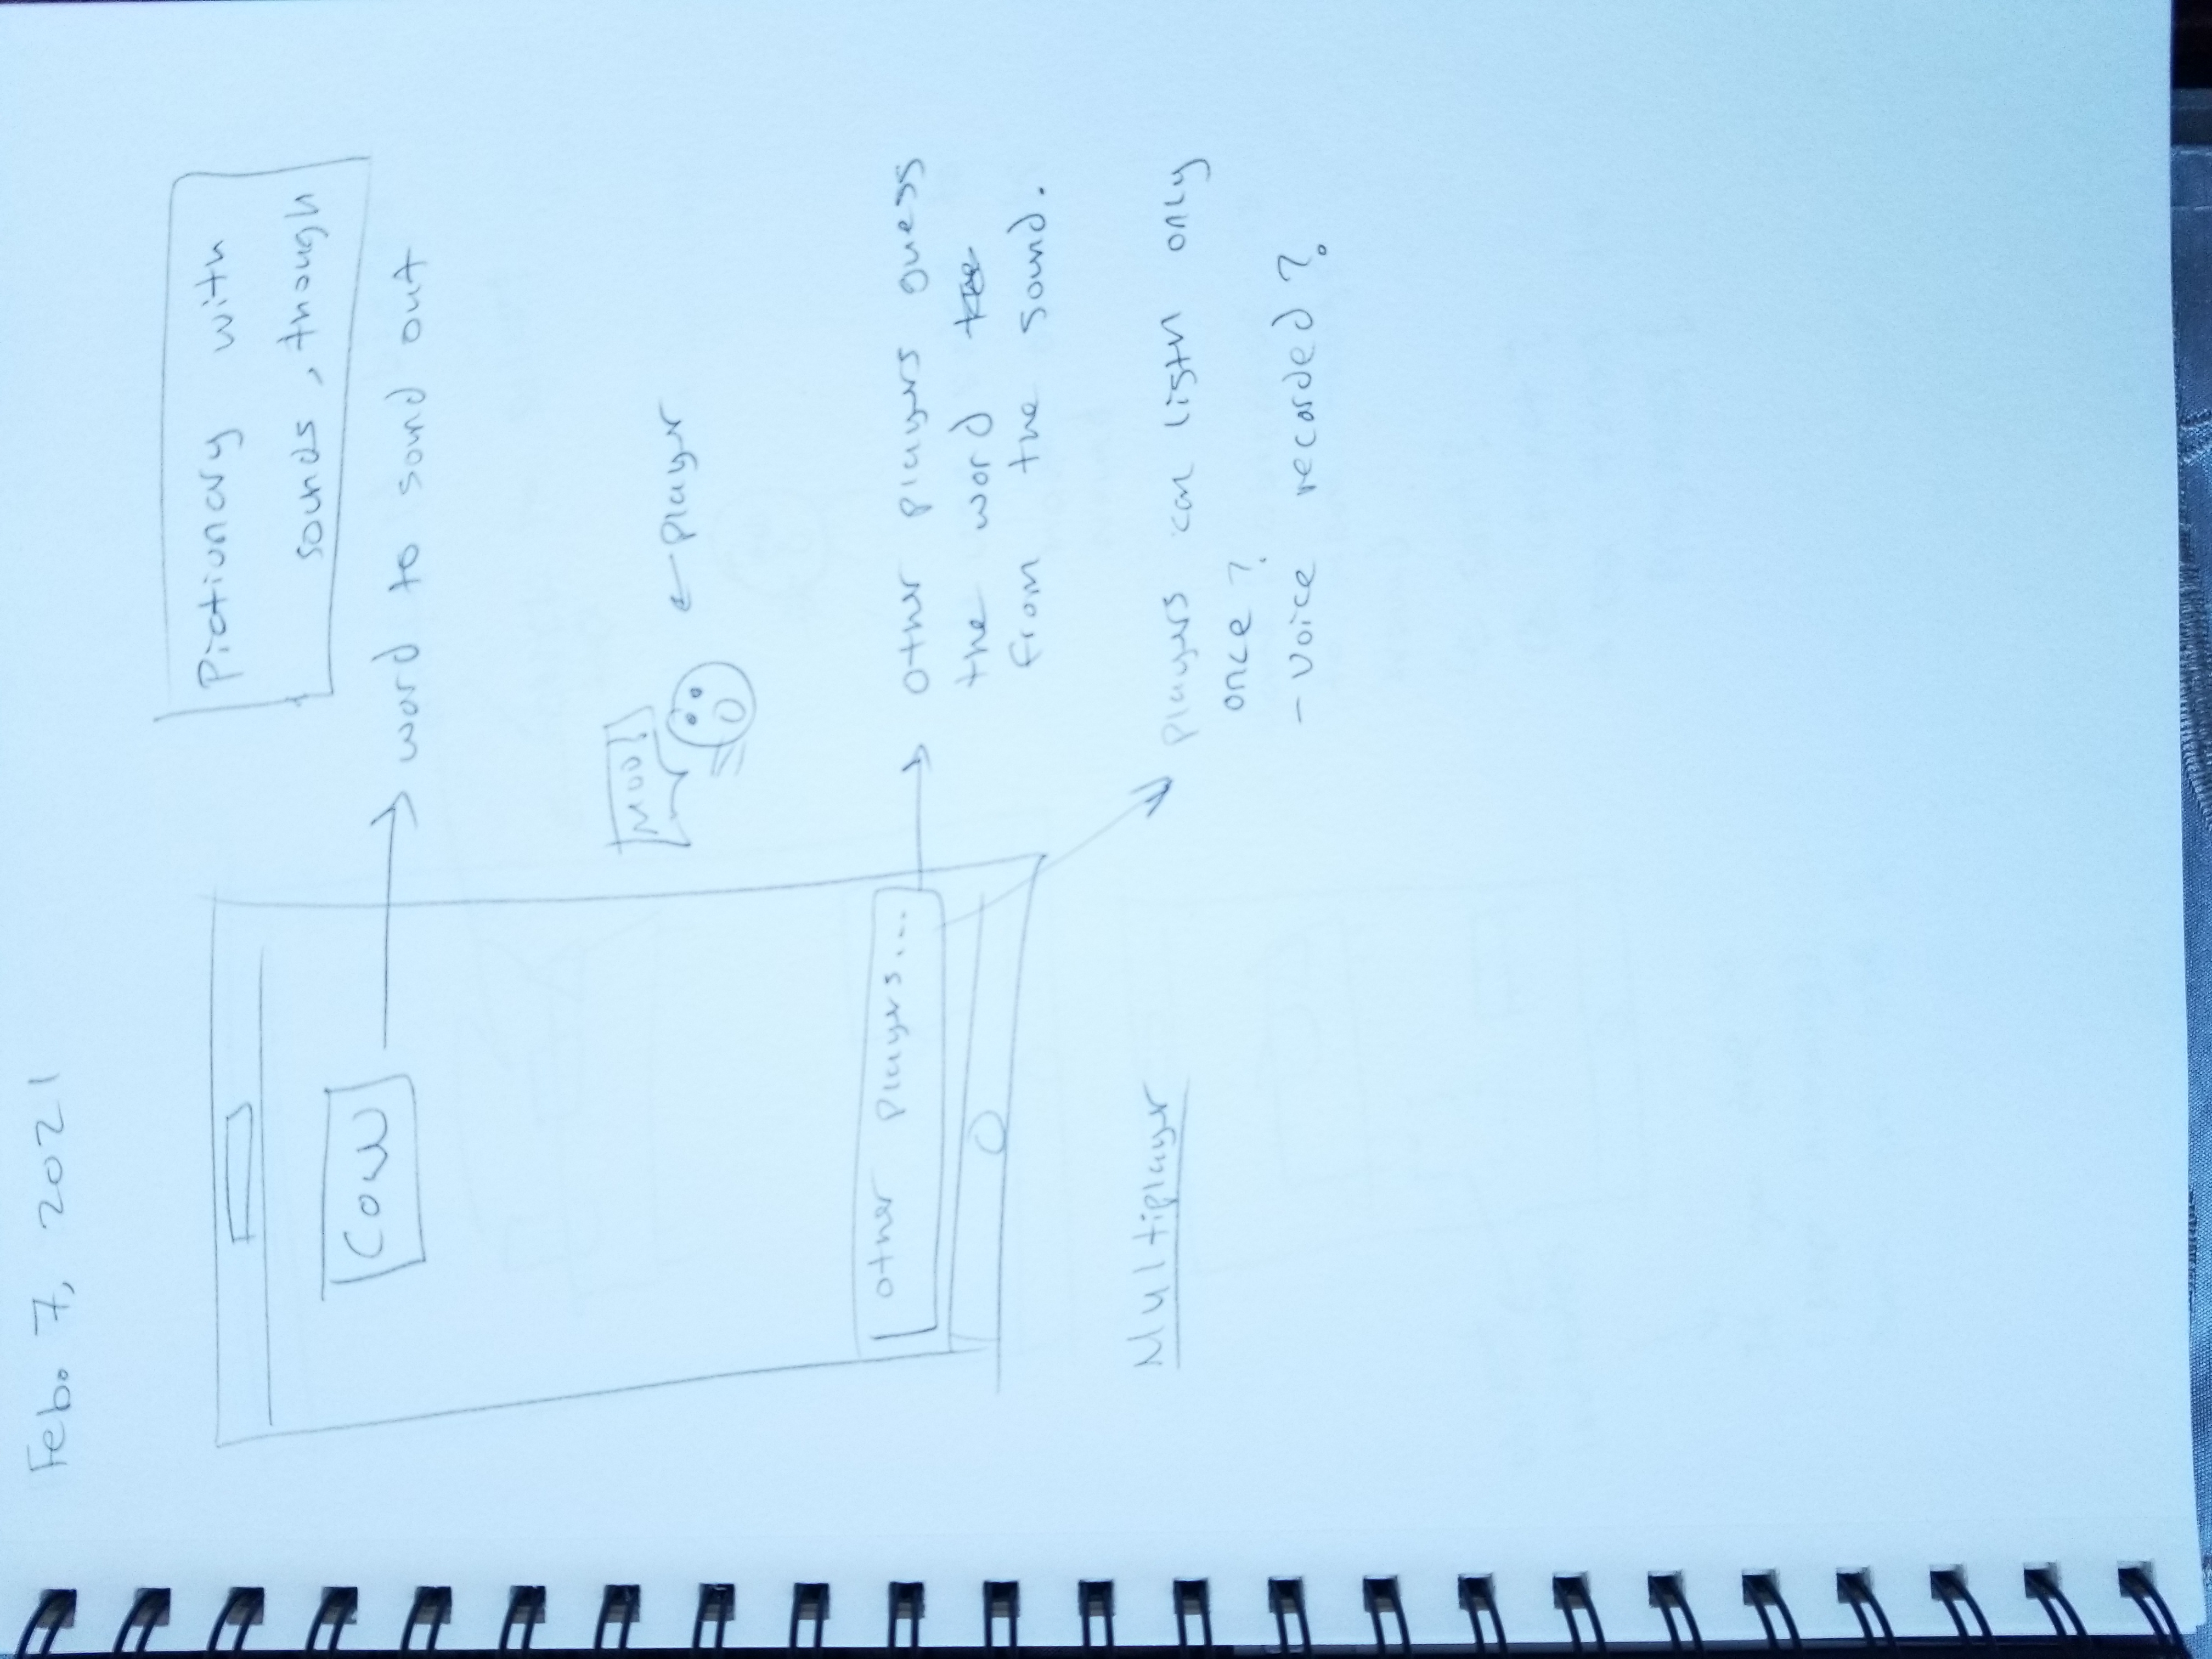 Feb. 7, 2021
Pictionary with
sounds, though
Cow
word to sound out
Moo!
player
other players...
other players guess
the word
from the sound.
Multiplayer
players can listn only
once?
- voice recorded?